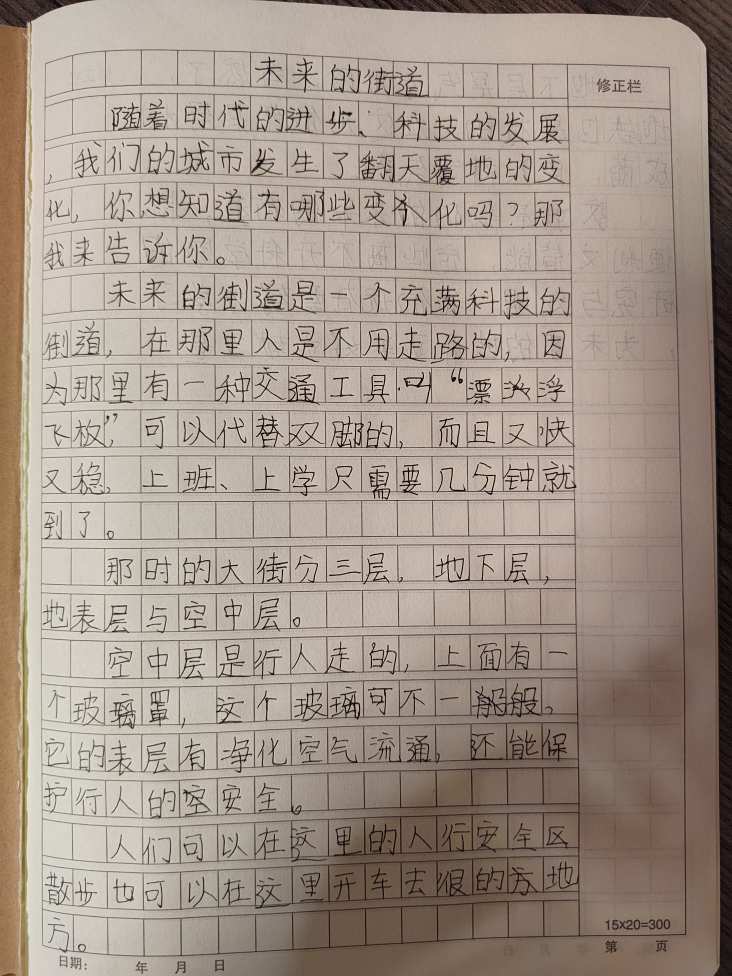 未来的街道
修正栏
随着时代的进步、科技的发展
，我们的城市发生了翻天覆地的变
化，你想知道有哪些变化吗？那
我来告诉你。
未来的街道是一个充满科技的
街道，在那里人是不用走路的，因
为那里有一种交通工具叫“漂浮
飞板”，可以代替双脚的，而且又快
又稳，上班、上学只需要几分钟就
到了。
那时的大街分三层，地下层，
地表层与空中层。
空中层是行人走的，上面有一
个玻璃罩，这个玻璃可不一般。
它的表层有净化空气流通，还能保
护行人的安全。
人们可以在这里的人行安全区
散步也可以在这里开车去很的地
方。
15×20=300
日期： 年 月 日
第 页